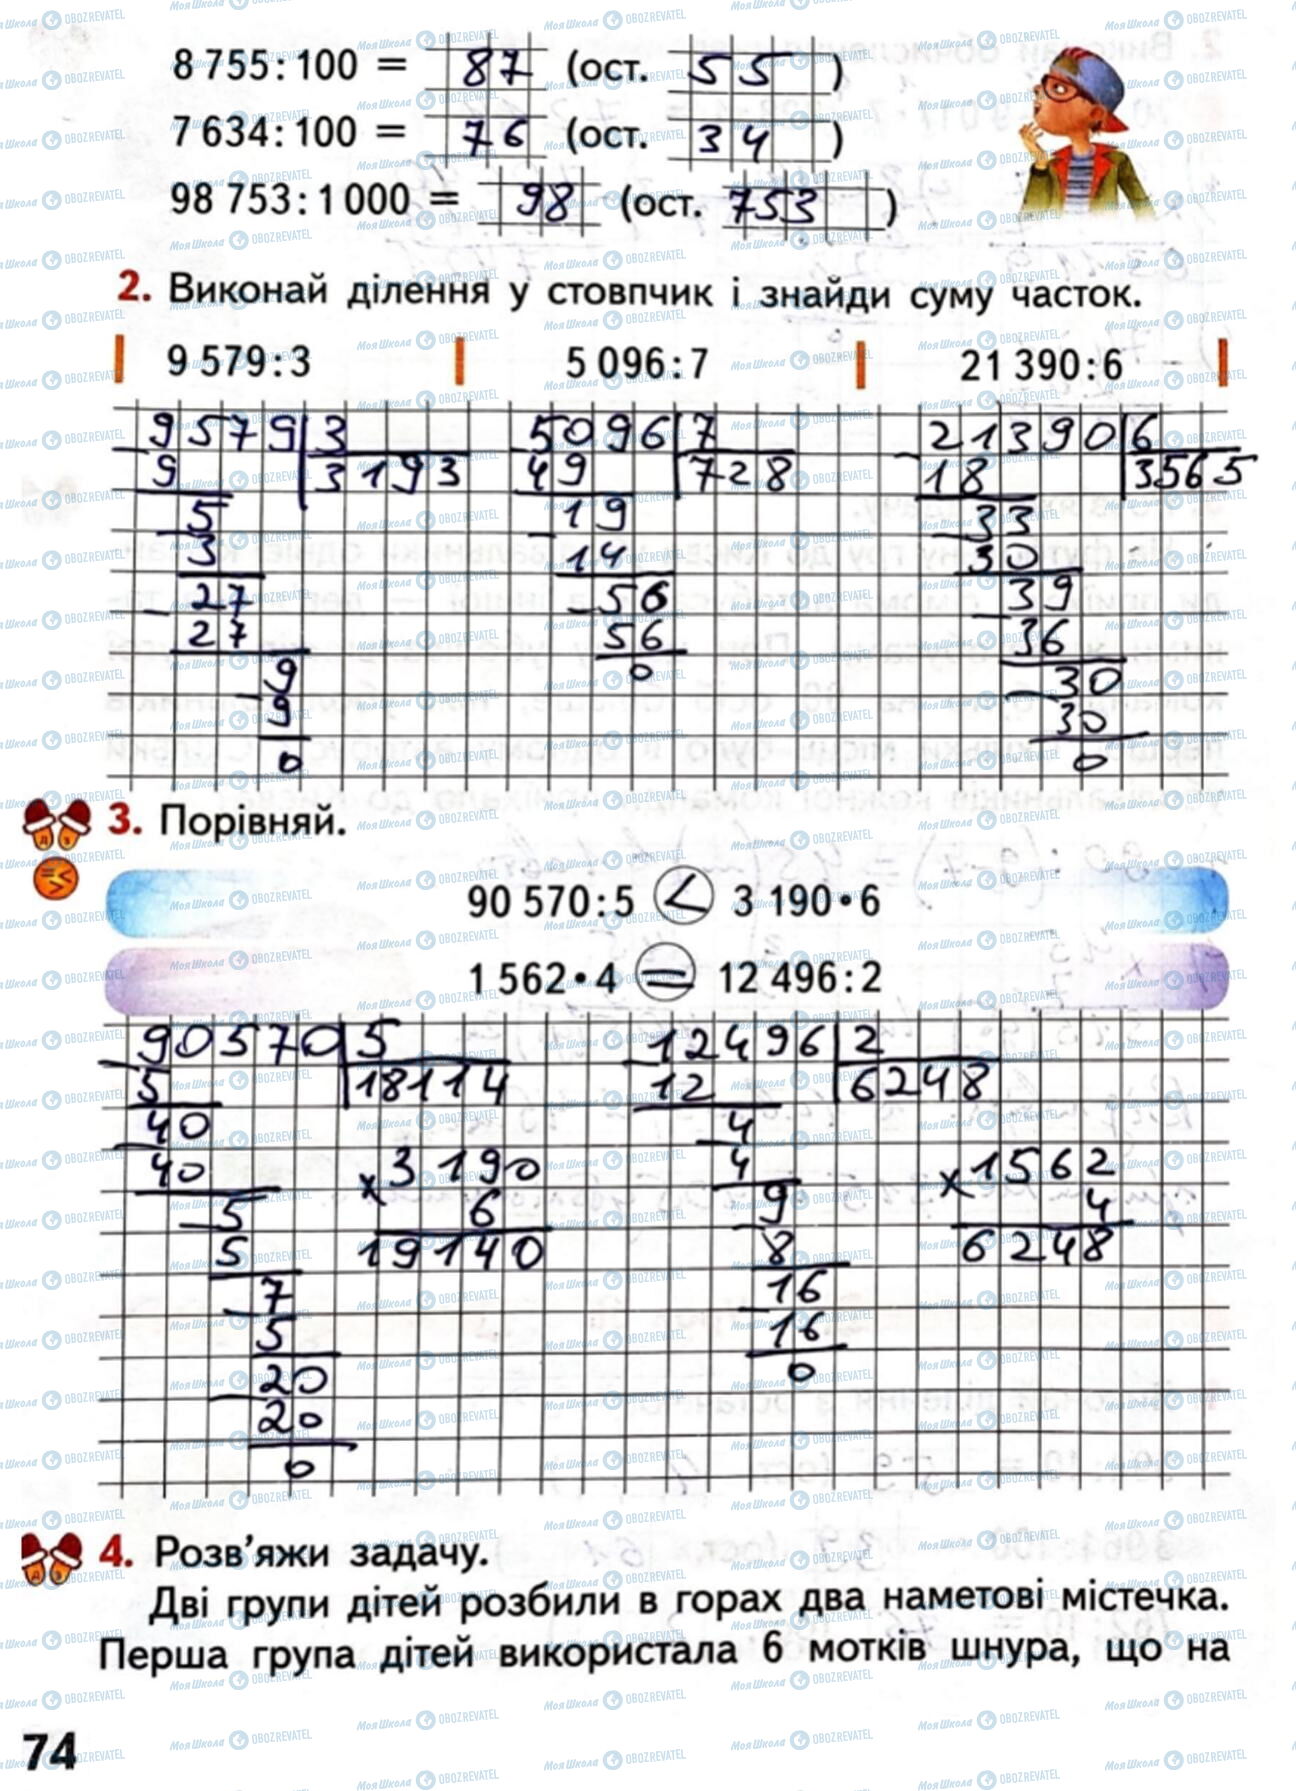 8 755 : 100 = 87 (ост. 55 )
7 634 : 100 = 76 (ост. 34 )
98 753 : 1 000 = 98 (ост. 753 )
2. Виконай ділення у стовпчик і знайди суму часток.
9 579 : 3 5 096 : 7 21 390 : 6
9579 3 5096 7 21390 6
9 3193 49 728 18 3565
5 19 33
3 14 30
27 56 39
27 56 36
9 0 30
9 30
0 0
3. Порівняй.
90 570 : 5 < 3 190 • 6
1 562 • 4 = 12 496 : 2
90570 5 12496 2
5 18114 12 6248
40 4
40 × 3190 4 × 1562
5 6 9 4
5 19140 8 6248
7 16
5 16
20 0
20
0
4. Розв'яжи задачу.
Дві групи дітей розбили в горах два наметові містечка.
Перша група дітей використала 6 мотків шнура, що на
74